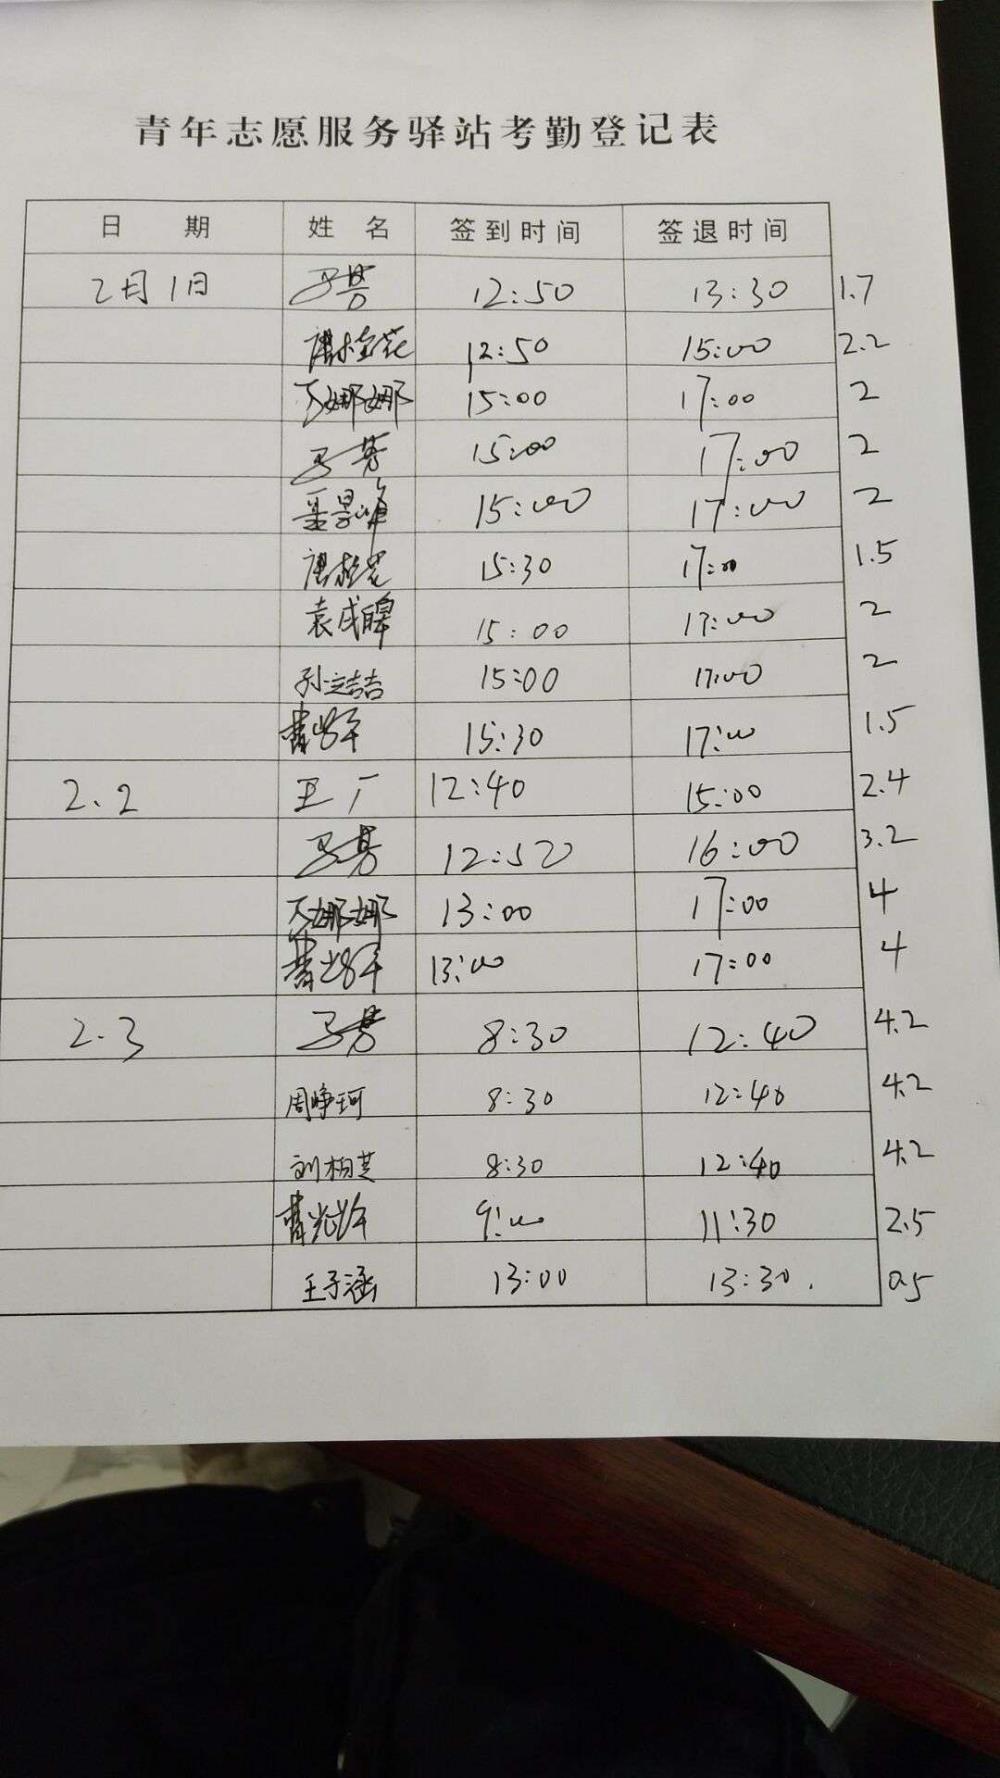 青年志愿服务驿站考勤登记表
日期 姓名 签到时间 签退时间
2月1日 马芳 12:50 13:30 1.7
唐桂花 12:50 15:00 2.2
娜娜 15:00 17:00 2
马芳 15:00 17:00 2
15:00 17:00 2
唐桂花 15:30 17:00 1.5
袁成皞 15:00 17:00 2
孙立喆 15:00 17:00 2
15:30 17:00 1.5
2.2 王广 12:40 15:00 2.4
马芳 12:50 16:00 3.2
娜娜 13:00 17:00 4
13:00 17:00 4
2.3 马芳 8:30 12:40 4.2
周峥珂 8:30 12:40 4.2
刘栩芝 8:30 12:40 4.2
9:00 11:30 2.5
王子涵 13:00 13:30. 0.5